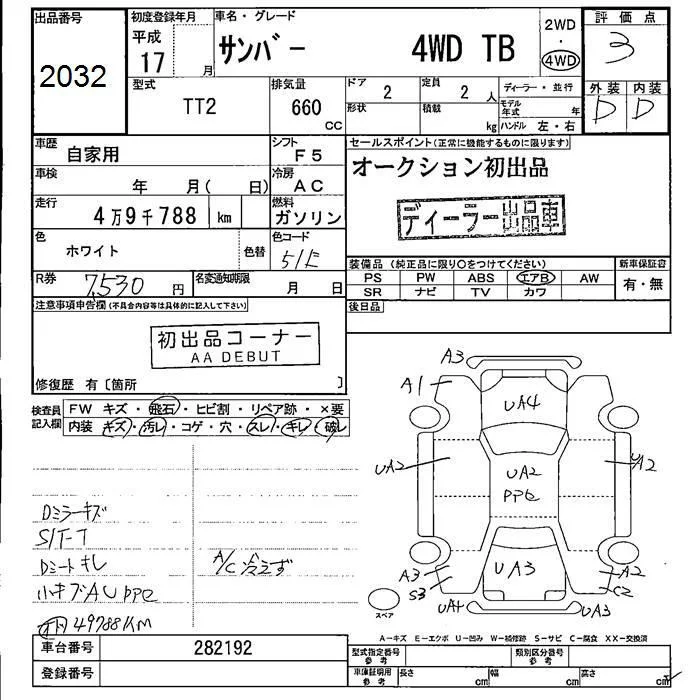 出品番号 2032
初度登録年月 平成 17 月
車名・グレード サンバー 4WD TB
2WD ・ 4WD
評価点 3
型式 TT2
排気量 660 CC
ドア 2
形状
定員 2 人
積載 kg
ディーラー・並行
モデル年式 年
ハンドル 左・右
外装 内装
D D
車歴 自家用
シフト F5
セールスポイント(正常に機能するものに限り)
オークション初出品
ディーラー出品車
車検 年 月( 日)
冷房 AC
走行 4万9千788 km
燃料 ガソリン
色 ホワイト 色替
色コード 51E
装備品 (純正品に限り○をつけてください)
PS PW ABS エアB AW
SR ナビ TV カワ
新車保証書 有・無
R券 7,530 円
名変通知期限 月 日
後日品
注意事項申告欄(不具合内容等は具体的に記入して下さい)
初出品コーナー
AA DEBUT
修復歴 有〔箇所 〕
検査員記入欄
FW キズ・飛石・ヒビ割・リペア跡・×要
内装 キズ・汚レ・コゲ・穴・スレ・キレ・破レ
Dミラーキズ
S/T-T
Dシートキレ
小キズAU PPC
A/C 冷えず
49788KM
A3
A1
UA4
UA2
UA2
PPC
UA2
A3
S3
UA3
A2
C2
UA4
UA3
スペア
A―キズ E―エクボ U―凹み W―補修跡 S―サビ C―腐食 XX―交換済
車台番号 282192
登録番号
型式指定番号 参考
類別区分番号 参考
車庫証明用 参考
長さ cm 幅 cm 高さ cm